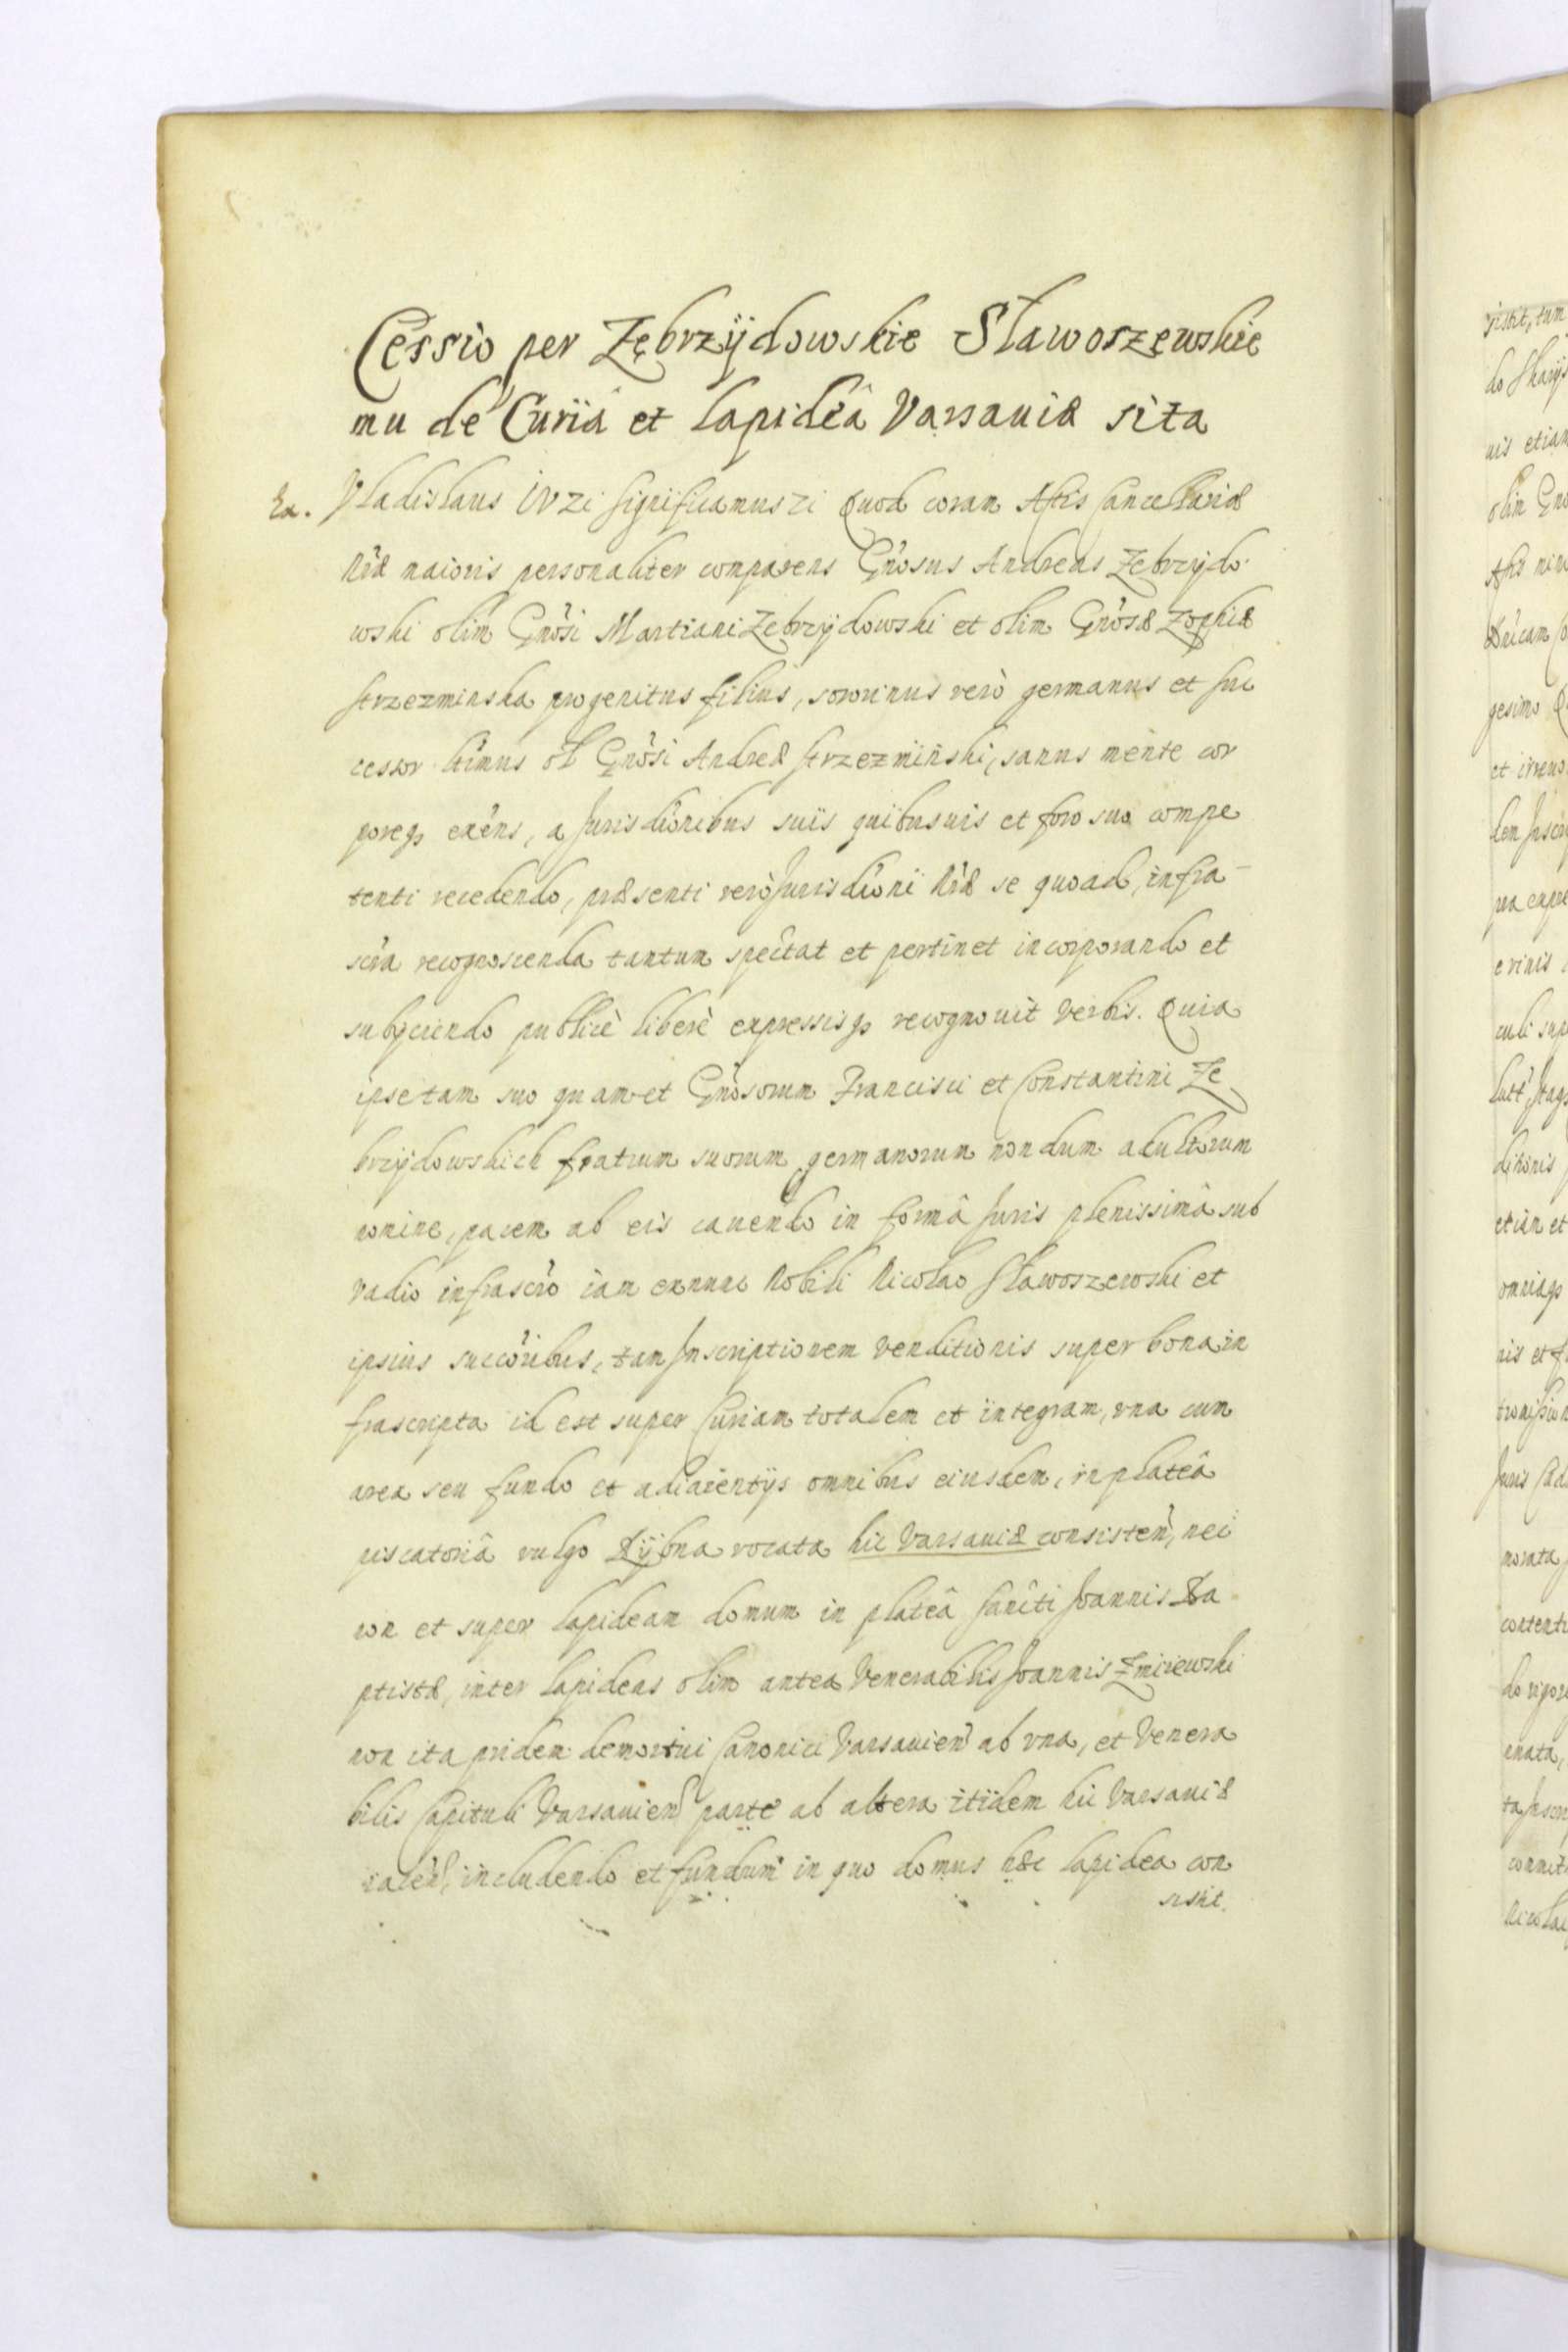 Cessio per Zębrzÿdowskie Sławoszewskie
mu de Curiâ et lapideâ Varsauiæ sita
Ex. Vladislaus IV Zċ significamus Zċ Quod coram Actis Cancellariæ
Nræ maioris personaliter comparens Gnosus Andreas Zebrzydo
wski olim Gnosi Martiani Zebrzÿdowski et olim Gnosæ Zophiæ
Strzezminska progenitus filius, sororinus verò germanus et suc
cessor ltimus ol Gnosi Andreæ Strzezminski, sanus mente cor
poreqz exëns, a Jurisdionibus suis quibusuis et foro suo compe
tenti recedendo, præsenti verò Jurisdioni Nræ se quoad infra
scra recognoscenda tantum spectat et pertinet incorporando et
subÿciendo publicè liberè expressisqz recognouit verbis. Quia
ipse tam suo quam et Gnosorum Francisci et Constantini Ze
brzÿdowskich fratrum suorum germanorum nondum adultorum
nomine, pacem ab eis cauendo in formâ Juris plenissimâ sub
vadio infrascro iam exnunc Nobili Nicolao Sławoszewski et
ipsius succoribus, tam Inscriptionem venditionis super bona in
frascripta id est super Curiam totalem et integram, vna cum
area seu fundo et adiacentÿs omnibus eiusdem, in plateâ
piscatoriâ vulgo Rÿbna vocata hic Varsauiæ consisten, nec
non et super lapideam domum in plateâ Sancti Joannis Ba
ptistæ, inter lapideas olim antea Venerabilis Joannis Zmiewski
non ita pridem demortui Canonici Varsauien ab vna, et Venera
bilis Capituli Varsauien parte ab altera itidem hic Varsauiæ
iacen, includendo et fundum in quo domus hæc lapidea con
sistit,